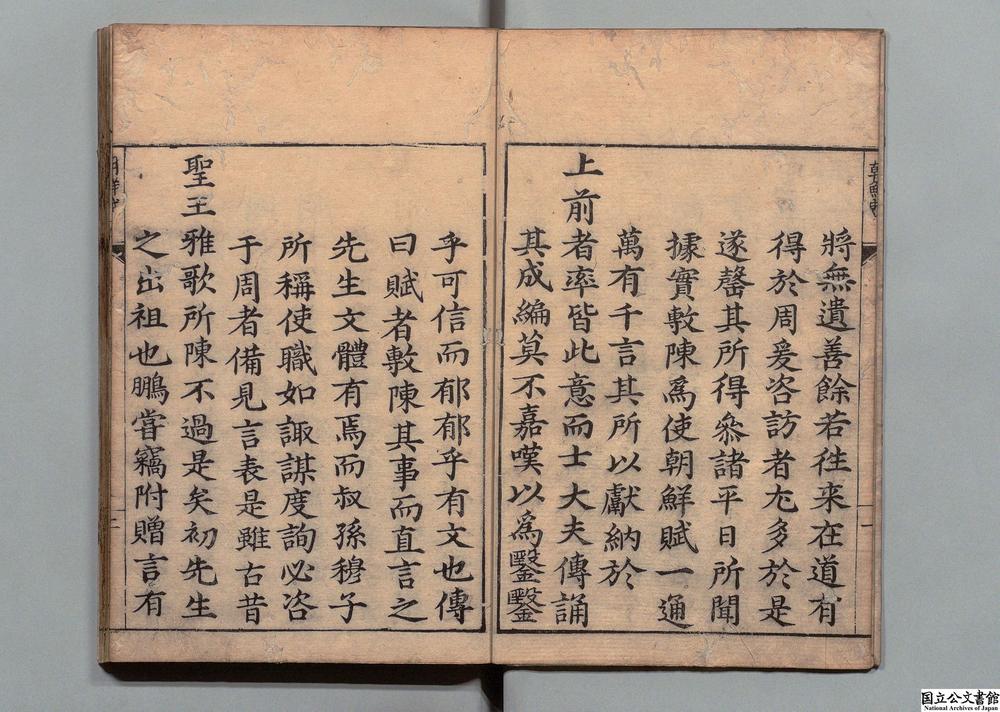 將無遺善餘若徃来在道有
得於周爰咨訪者尤多於是
遂罄其所得叅諸平日所聞
據實敷陳爲使朝鮮賦一通
萬有千言其所以獻納於
上前者率皆此意而士大夫傳誦
其成編莫不嘉嘆以爲鑿鑿
乎可信而郁郁乎有文也傳
曰賦者敷陳其事而直言之
先生文體有焉而叔孫穆子
所稱使職如諏謀度詢必咨
于周者備見言表是雖古昔
聖王雅歌所陳不過是矣初先生
之出祖也鵬嘗竊附贈言有
朝鮮賦
一
二
国立公文書館
National Archives of Japan